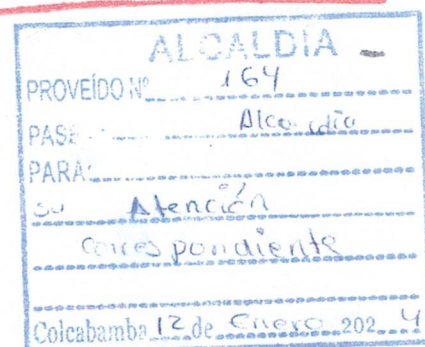 ALCALDIA
PROVEÍDO Nº 164
PASE Alcaldía
PARA:
su Atención
correspondiente
Colcabamba 12 de Enero 2024